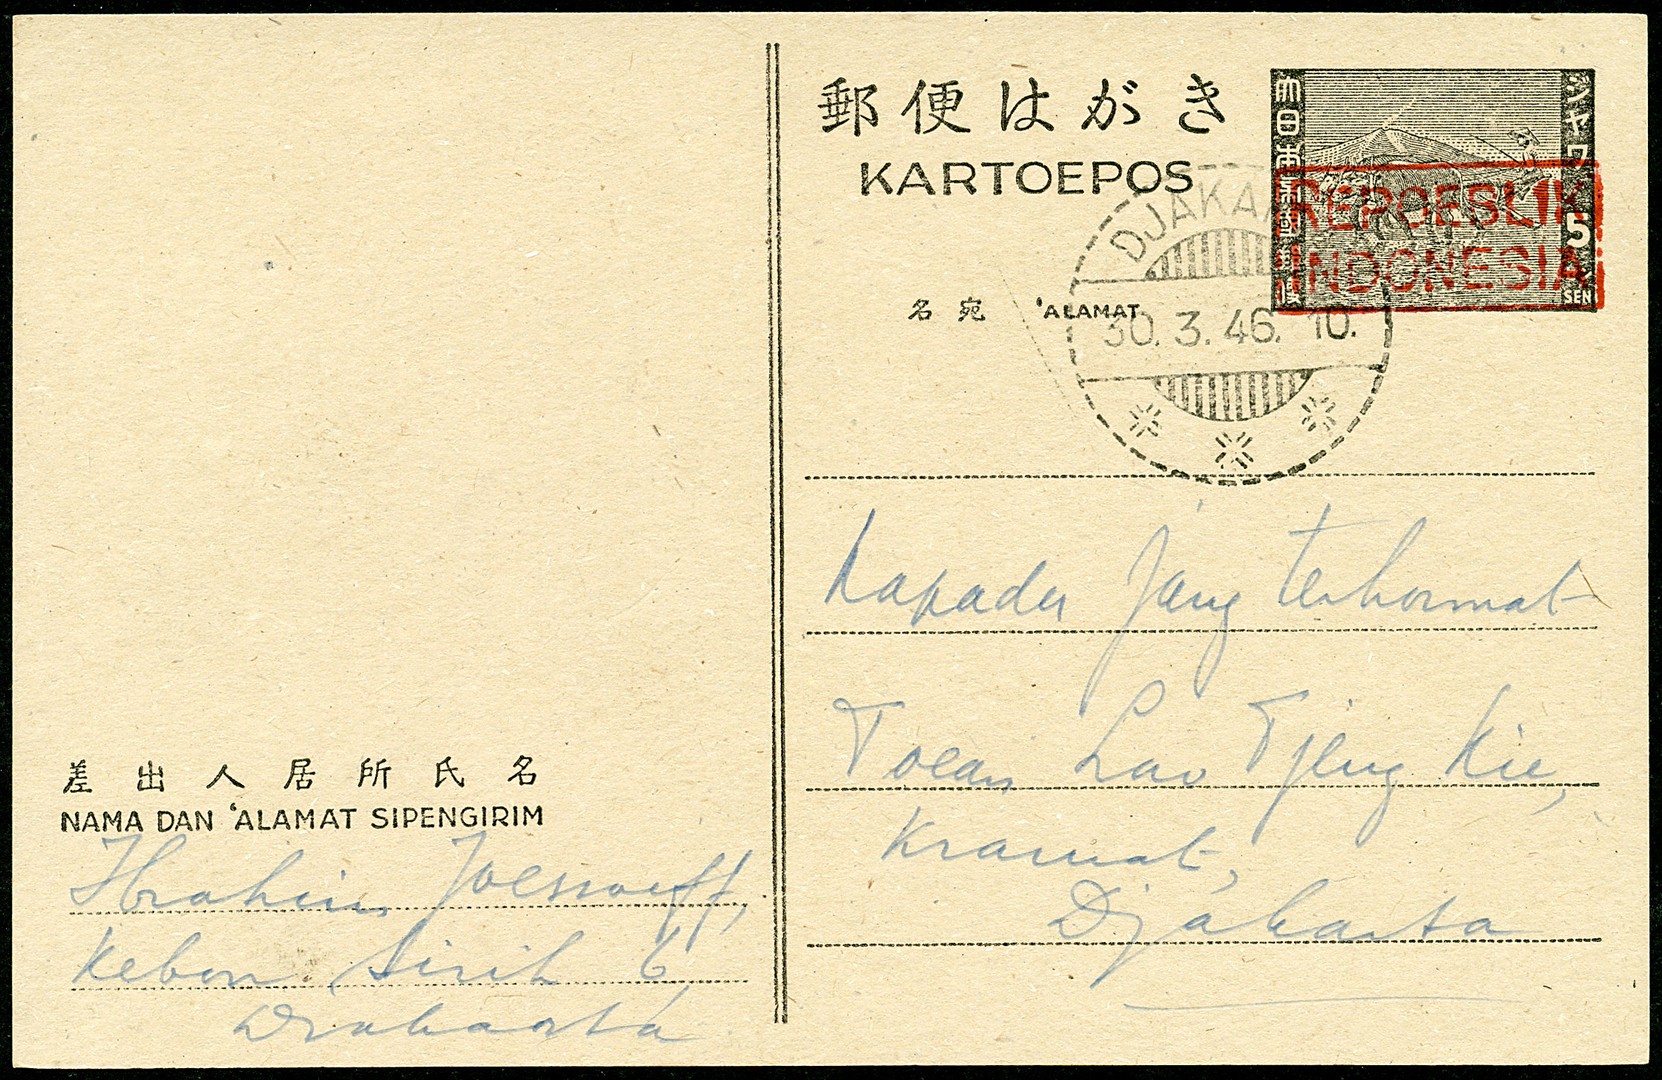 郵便はがき
KARTOEPOS
大日本帝国郵便
ジャワ
5
SEN
REPOEBLIK
INDONESIA
DJAKA
30. 3. 46. 10.
名宛 'ALAMAT
Kapada Jang terhormat
Toean Lao Tjeng Kie,
Kramat,
Djakarta
差出人居所氏名
NAMA DAN 'ALAMAT SIPENGIRIM
Ibrahim Joessoeff,
Kebon Sirih 6,
Djakarta